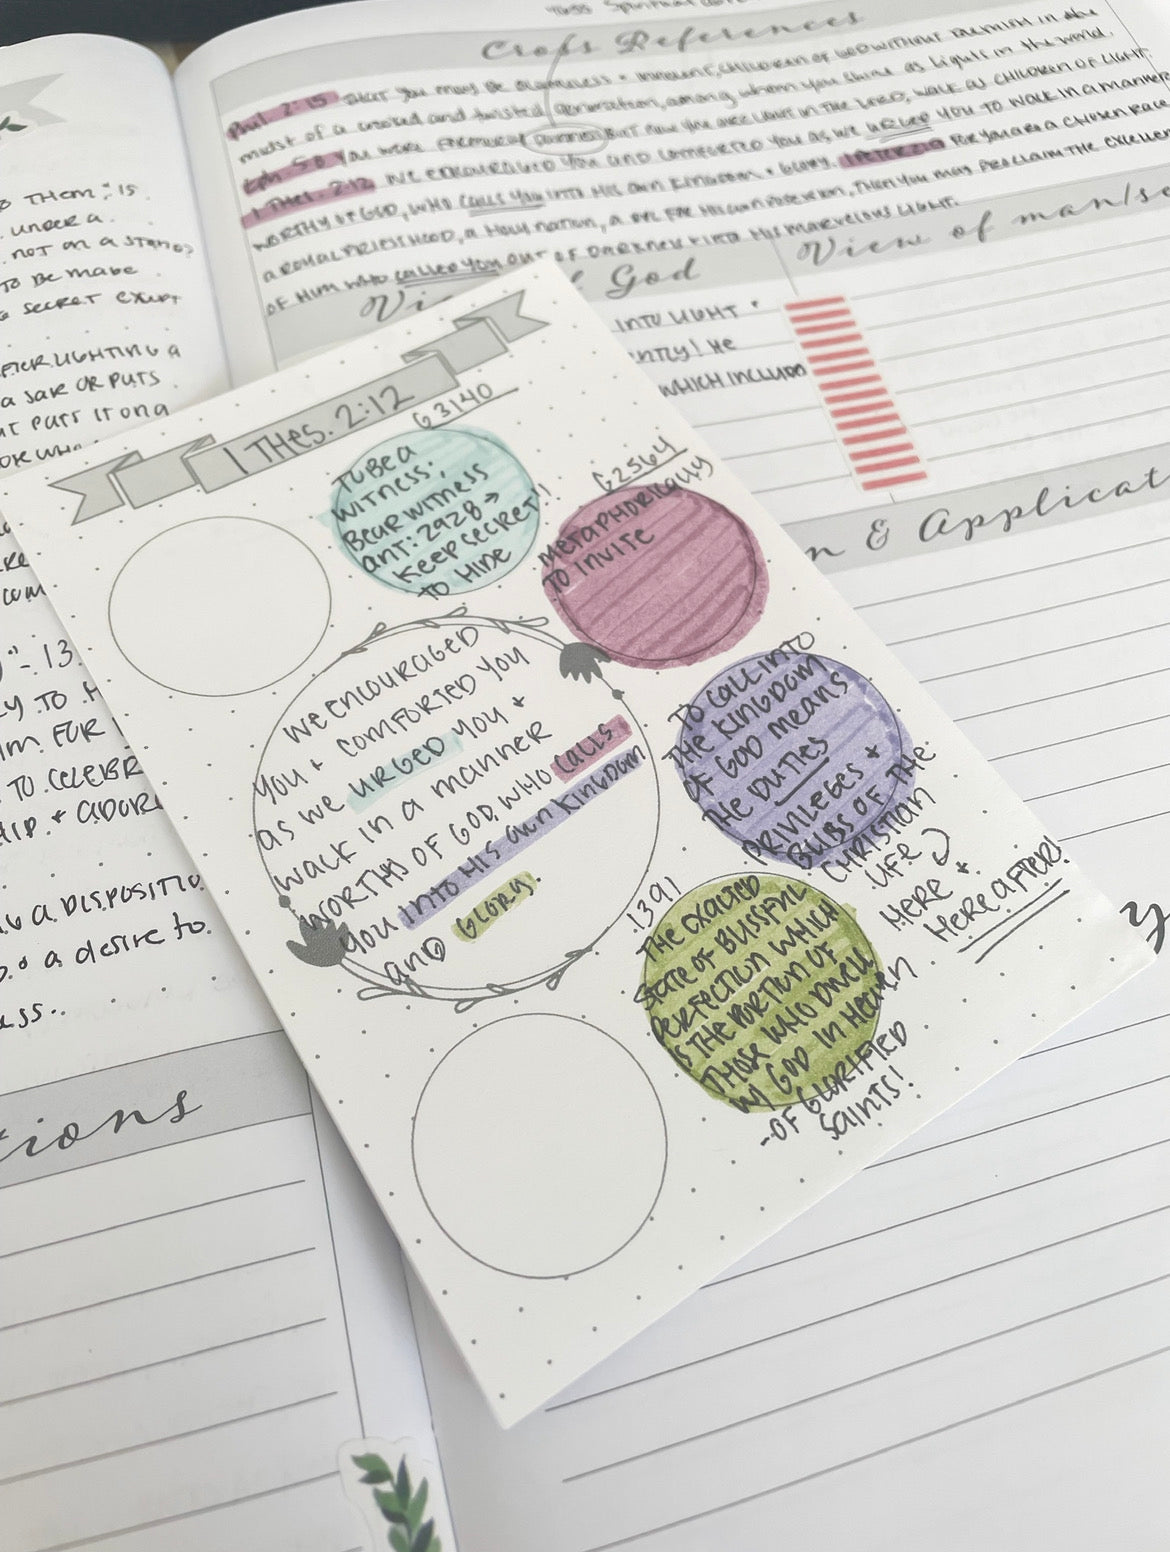 Cross References
Phil 2:15 that you may be blameless + innocent, children of God without blemish in the
midst of a crooked and twisted generation, among whom you shine as lights in the world.
Eph 5:8 You were formerly darkness but now you are light in the Lord, walk as children of light.
1 Thes. 2:12 we encouraged you and comforted you as we urged you to walk in a manner
worthy of God, who calls you into His own kingdom + glory. 1 Peter 2:9 for you are a chosen race
a royal priesthood, a holy nation, a for His own possession, that you may proclaim the excellen
of Him who called you out of darkness into His marvelous light.
View of man/s
God
into light
ntly! He
which includ
n & Applicat
o them," is
under a
not on a stand?
to be made
a secret except
after lighting a
a jar or puts
t puts it on a
"- 13.
y to H
im. For
to celebr
hip. + ador
g a dispositio
a desire to
ss..
tions
1 Thes. 2:12
G3140
to be a
witness;
bear witness
ant: 2928 →
keep secret!!
to hide
G2564
metaphorically
to invite
to call into
the kingdom
of God means
the duties
privileges +
bliss of the
Christian
life
here +
hereafter!
we encouraged
you + comforted you
as we urged you +
walk in a manner
worthy of God, who calls
you into His own kingdom
and glory.
1391
the exalted
state of blissful
perfection which
is the portion of
those who dwell
w/ God in heaven
-of glorified
saints!